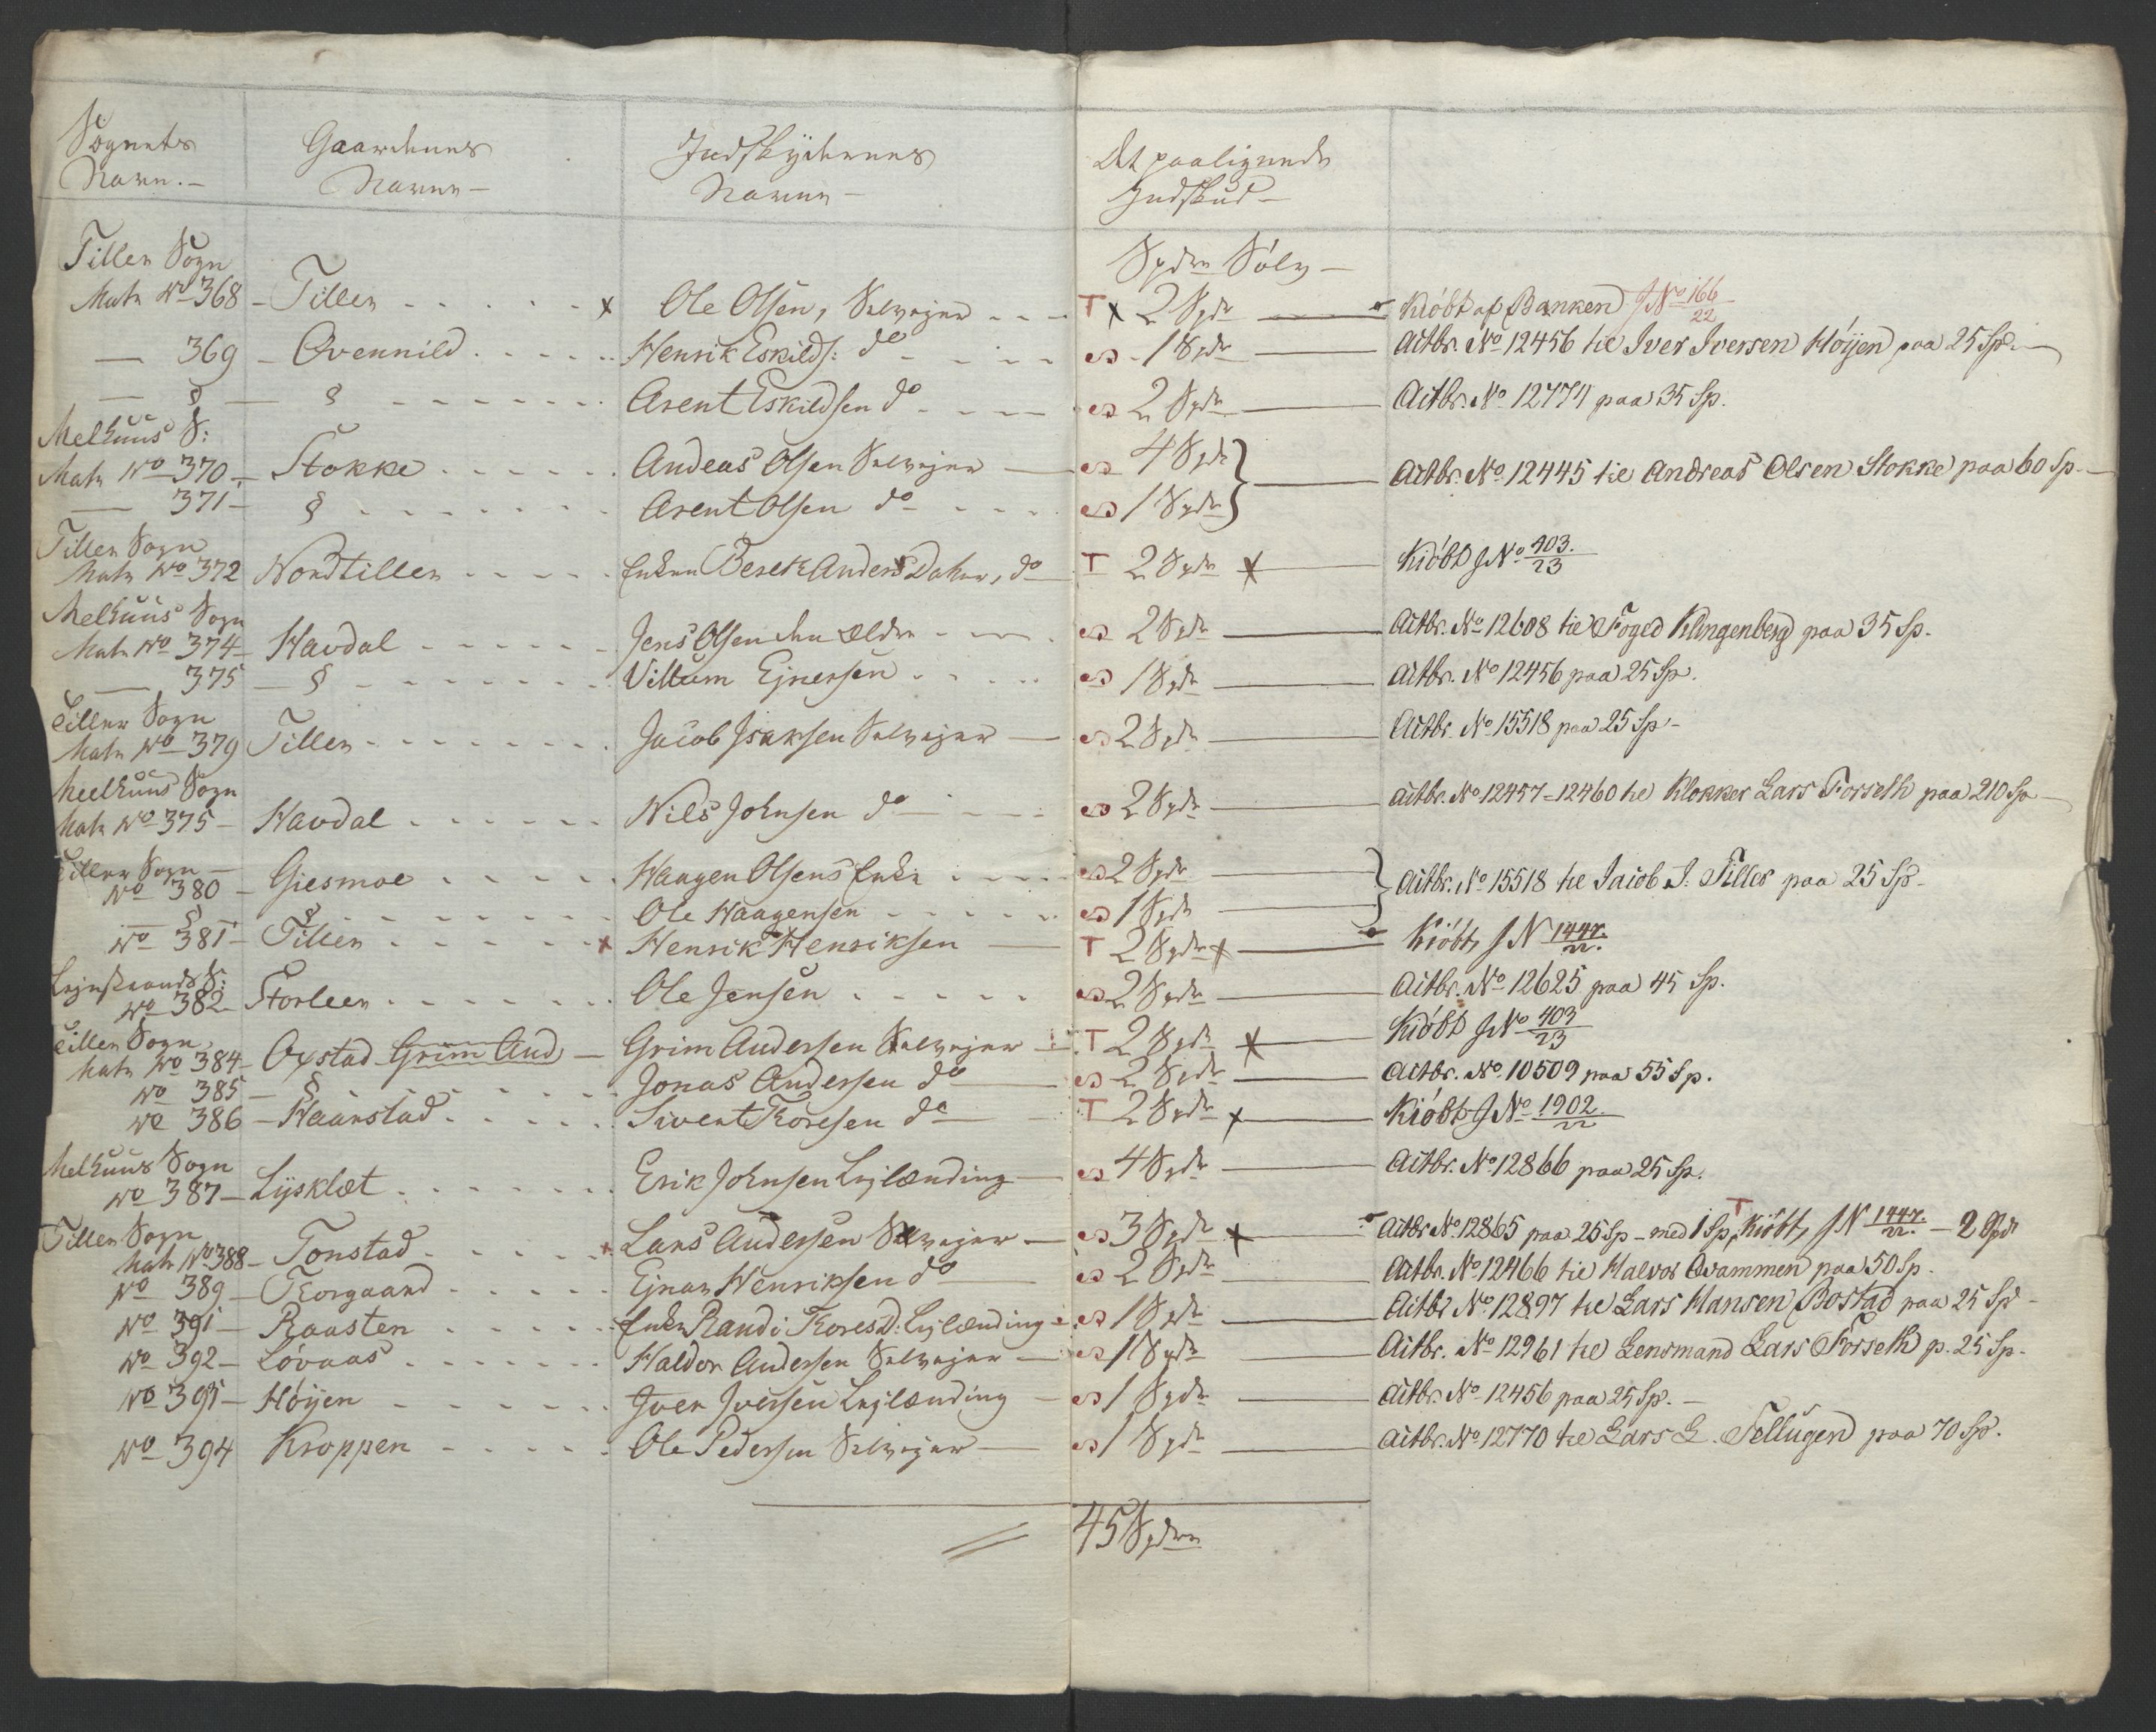 Sognets Navn.— Gaardenes Navne— Indskydernes Navne— Det paalignede Indskud—
Tiller Sogn Spdlr Sølv—
Matr No 368 – Tiller x Ole Olsen, Selvejer T x 2 Spdr — Kiöbt af Banken J No 166/22
— 369 – Qvennild Henrik Eskilds: do 1 Spdr — Actbr. No 12456 til Iver Iversen Höijen paa 25 Sp.
— § — § Arent Eskildsen do 2 Spdr — Actbr. No 12774 paa 35 Sp.
Melhuus S:
Matr No 370 – Stokke Andeas Olsen Selvejer — 4 Spdr } Actbr. No 12445 til Andreas Olsen Stokke paa 60 Sp.—
— 371 – § Arent Olsen do 1 Spdr }
Tiller Sogn
Matr No 372 Nordtiller Enken Beret Anders Dater, do T 2 Spdr x — Kiöbt J No 403./23
Melhuus Sogn
Matr No 374 – Havdal Jens Olsen den Ældre 2 Spdr — Actbr. No 12608 til Foged Klingenberg paa 35 Sp.
— 375 – § Villum Ejnersen 1 Spdr — Actbr. No 12456 paa 25 Sp.
Tiller Sogn
Matr No 379 Tiller Jacob Isaksen Selvejer — 2 Spdr — Actbr. No 15518 paa 25 Sp –
Meelhuus Sogn
Matr No 375 – Havdal Nils Johnsen do 2 Spdr — Actbr. No 12457–12460 til Klokker Lars Forseth paa 210 Sp
Tiller Sogn —
No 380 – Giesmoe Haagen Olsens Enke 2 Spdr — } Actbr. No 15518 til Jacob J. Tiller paa 25 Sp –
§ § Ole Haagensen 1 Spdr — }
No 381 – Tiller x Henrik Henriksen — T 2 Spdr x — Kiöbt, J N 1447./22.
Lejnstrands S:
No 382 Storleer Ole Jensen 2 Spdr — Actbr. No 12625 paa 45 Sp.
Tiller Sogn
Matr No 384 – Oxstad Grim And – Grim Andersen Selvejer T 2 Spdr x Kiöbt J No 403/23
No 385 – § Jonas Andersen do 2 Spdr — Actbr. No 10509 paa 55 Sp.
No 386 – Haarstad Sivert Toresen do T 2 Spdr x — Kiöbt J No 1902./22
Melhuus Sogn
No 387 – Lysklæt Erik Johnsen Lejlænding — 4 Spdr — Actbr. No 12866 paa 25 Sp.
Tiller Sogn
Matr No 388 – Tonstad Lars Andersen Selvejer — 3 Spdr x — Actbr No 12865 paa 25 Sp – med 1 Sp, T Kiöbt, J N 1447./22. – 2 Spdr
No 389 – Torgaard Ejnar Henriksen do 2 Spdr — Actbr. No 12466 til Halvor Qvammen paa 50 Sp.
No 391 – Raasten Enken Randi Tores D: Lejlænding 1 Spdr — Actbr No 12897 til Lars Hansen Bostad paa 25 Sp –
No 392 – Lövaas Haldor Andersen Selvejer — 1 Spdr — Actbr. No 12961 til Lensmand Lars Forseth p. 25 Sp.
No 395 – Höyen Iver Iversen Lejlænding — 1 Spdr — Actbr. No 12456 paa 25 Sp. —
No 394 Kroppen Ole Pedersen Selvejer — 1 Spdr — Actbr. No 12770 til Lars L. Tellugen paa 70 Sp.
45 Spdlr